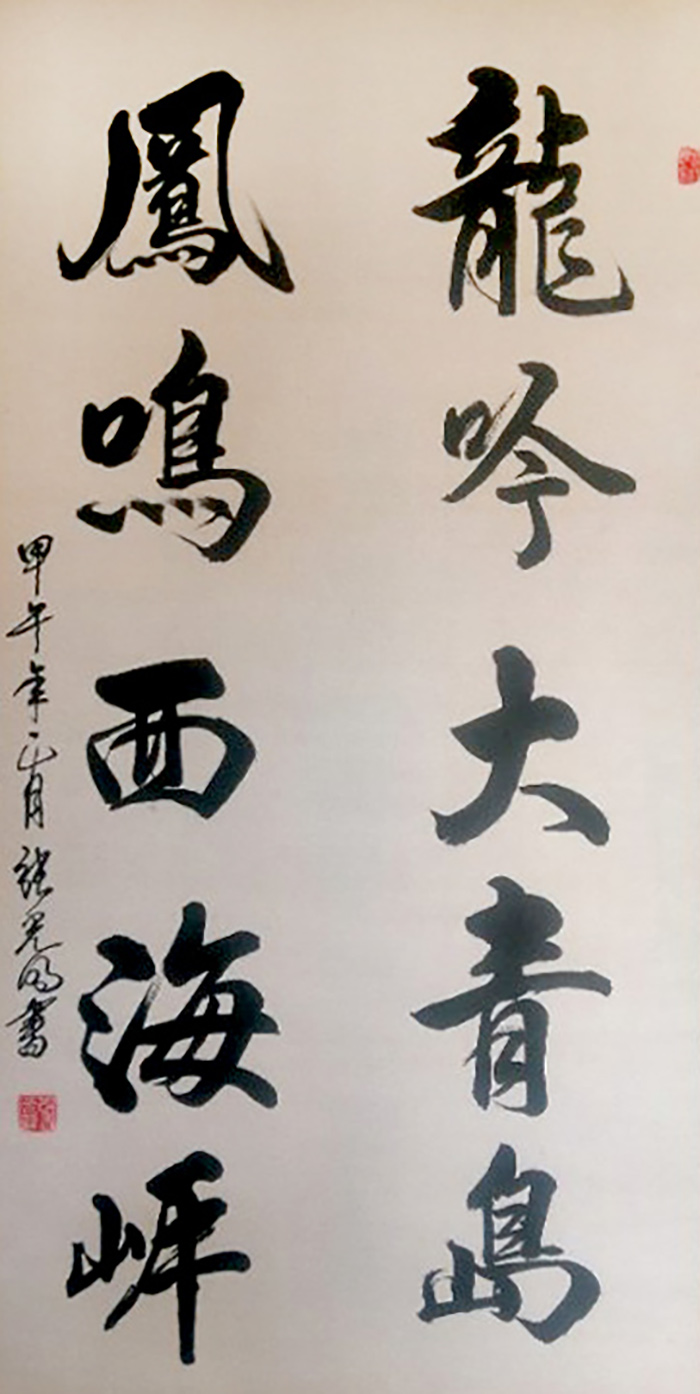 龍吟大青島
鳳鳴西海岸
甲午年正月張光明書